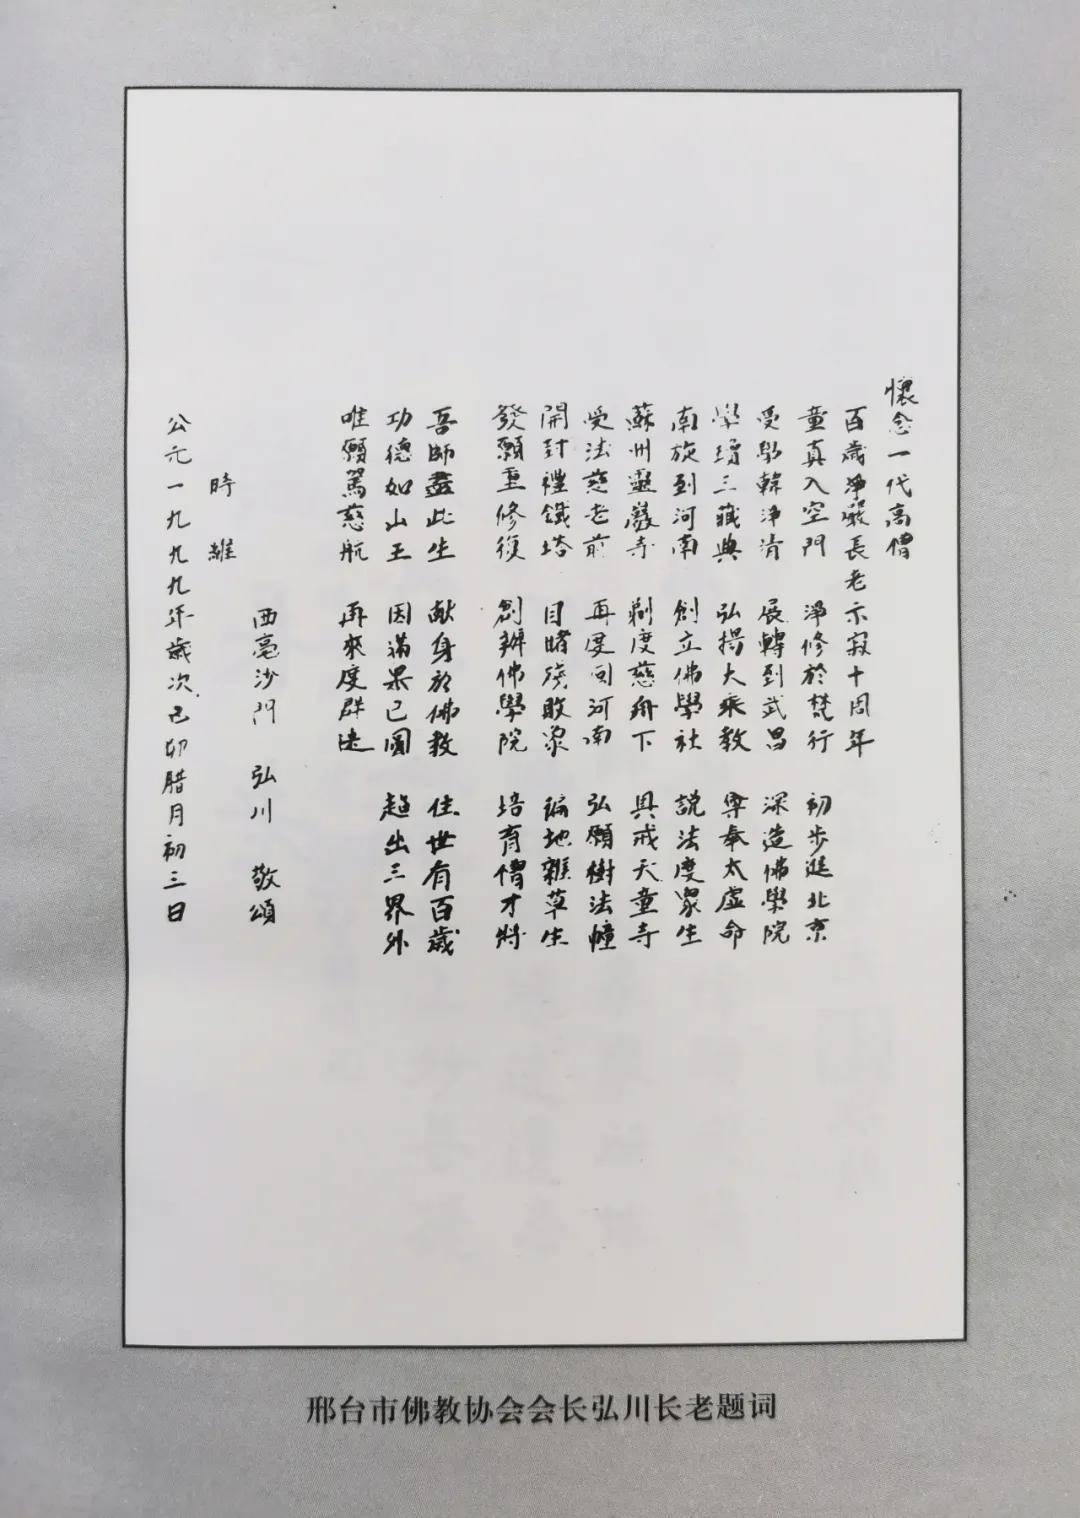 懷念一代高僧
百歲淨嚴長老示寂十周年
童真入空門 淨修於梵行 初步進北京
受學韓淨清 展轉到武昌 深造佛學院
學璔三藏典 弘揚大乘教 尊奉太虛命
南旋到河南 創立佛學社 說法度眾生
蘇州靈巖寺 剃度慈舟下 具戒天童寺
受法慈老前 再度回河南 弘願樹法幢
開封禮鐵塔 目睹殘敗像 遍地雜草生
發願重修復 創辦佛學院 培育僧才將
吾師盡此生 献身於佛教 住世有百歲
功德如山王 因滿果已圓 超出三界外
唯願駕慈航 再來度群迷
西亳沙門 弘川 敬頌
時維
公元一九九九年歲次己卯腊月初三日
邢台市佛教协会会长弘川长老题词